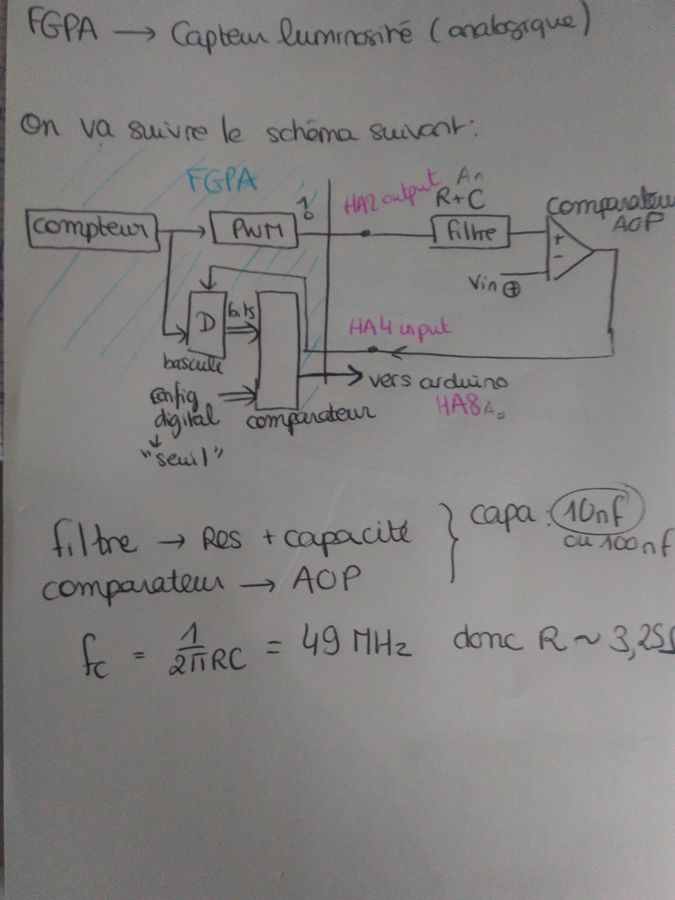 FGPA → Capteur luminosité (analogique)
On va suivre le schéma suivant:
FGPA
compteur
PWM
1
0
HA2 output
An
R+C
filtre
comparateur
AOP
+
-
Vin
D
bits
bascule
HA4 input
config
digital
"seuil"
comparateur
vers arduino
HA8
filtre → Res + capacité
comparateur → AOP
capa: 10nf
ou 100nf
fc = 1/2πRC = 49 MHz donc R ~ 3,25